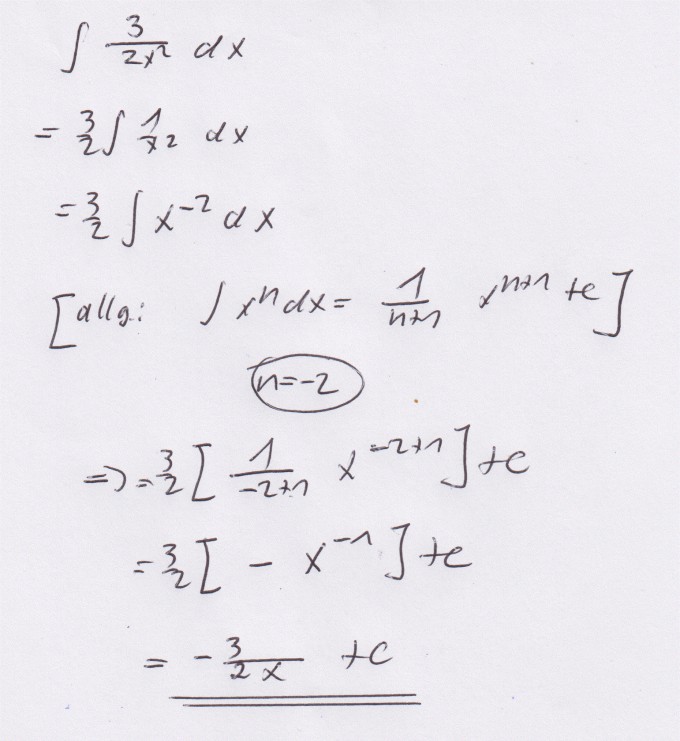 ∫ 3/(2x²) dx
= 3/2 ∫ 1/x² dx
= 3/2 ∫ x⁻² dx
[allg: ∫ xⁿ dx = 1/(n+1) xⁿ⁺¹ + c]
n = -2
=> = 3/2 [1/(-2+1) x⁻²⁺¹] + c
= 3/2 [- x⁻¹] + c
= - 3/(2x) + c